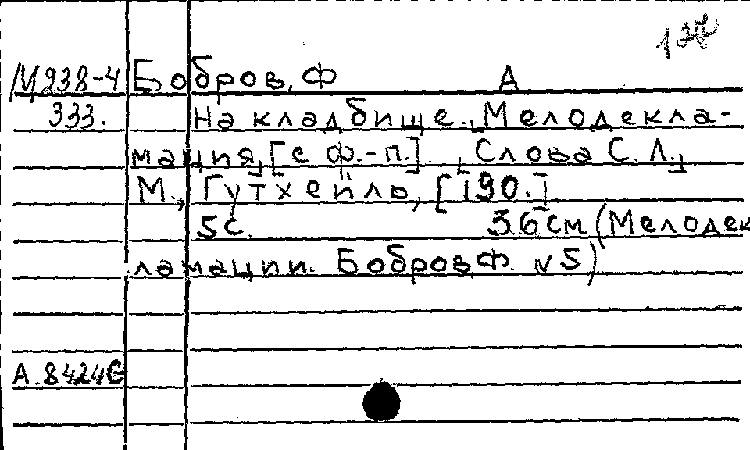 М938-4 Бобров, Ф А
333. На кладбище. [Мелодекла-
мация], [с ф.-п.] [Слова С. Л.]
М., Гутхейль, [190.]
5 с. 36 см (Мелодек
ламации. Бобров Ф. №5)
А. 8424